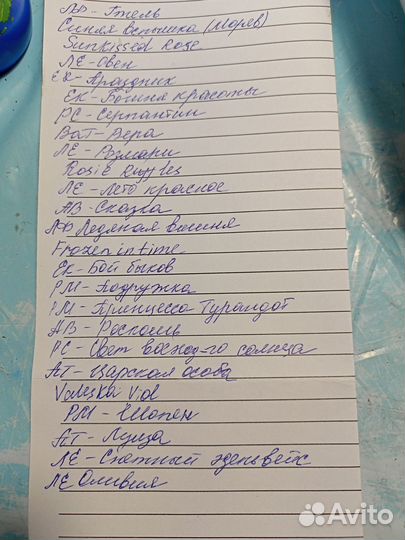 ЛФ - Гжель
Синяя вспышка (Морев)
Sunkissed Rose
ЛЕ - Овен
ЕК - Праздник
ЕК - Богиня красоты
РС - Серпантин
Ват - Вера
ЛЕ - Розмари
Rosie Ruffles
ЛЕ - Лето красное
АВ - Сказка
ЛФ Ледяная вишня
Frozen in time
Ек - Бой быков
РМ - Подружка
РМ - Принцесса Турандот
АВ - Роскошь
РС - Свет восход-го солнца
АТ - Царская особа
Valeska Viol
РМ - Шопен
АТ - Луиза
ЛЕ - Снежный эдельвейс
ЛЕ Оливия
Avito